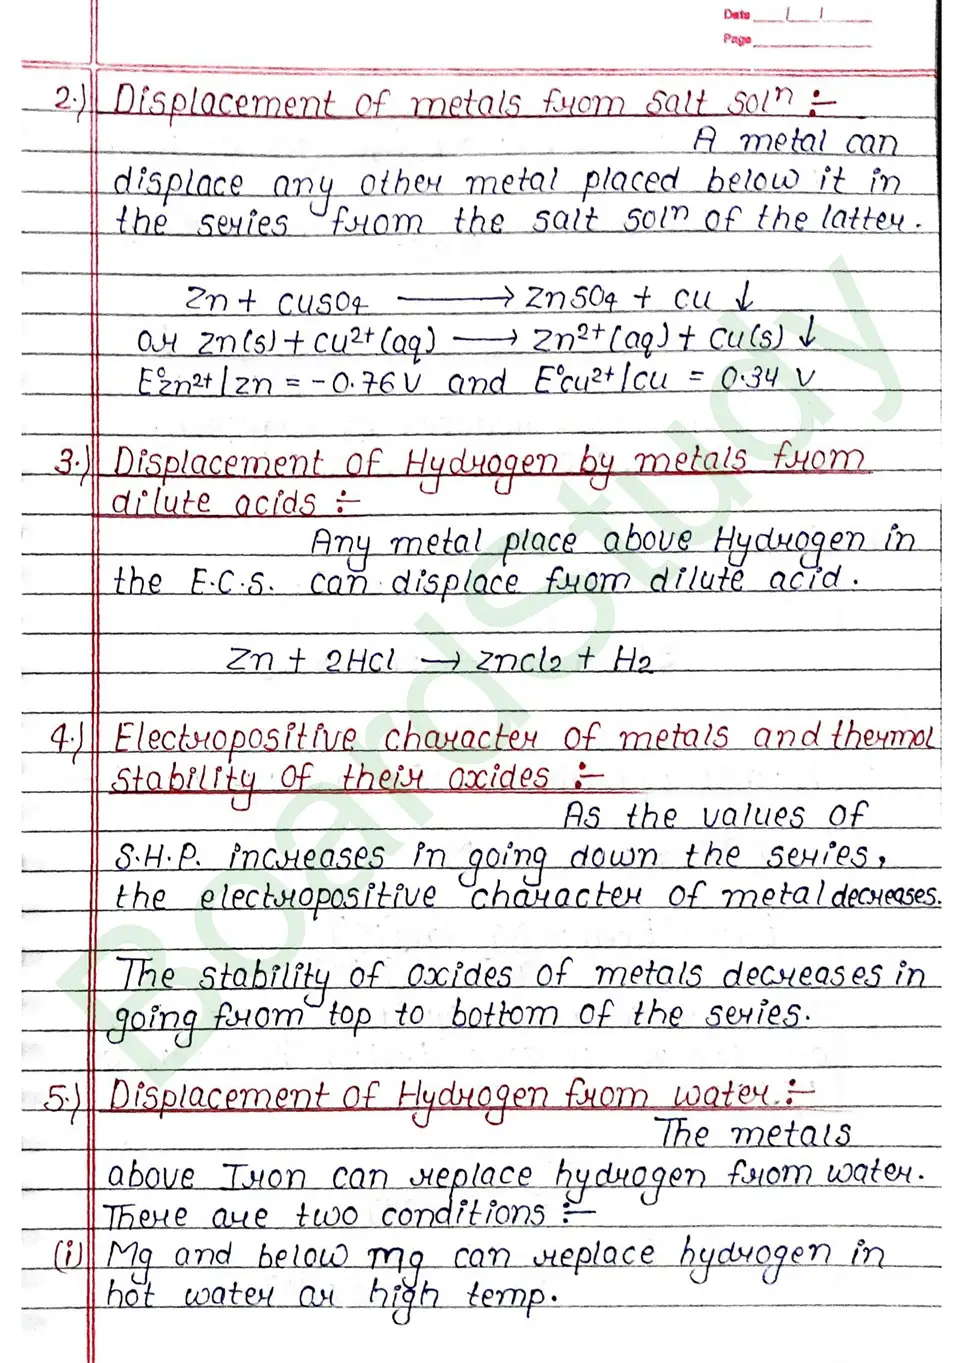 Date / /
Page
2.) Displacement of metals from salt solⁿ :-
A metal can
displace any other metal placed below it in
the series from the salt solⁿ of the latter.
Zn + CuSO4 ⟶ ZnSO4 + Cu ↓
or Zn(s) + Cu2+(aq) ⟶ Zn2+(aq) + Cu(s) ↓
E°Zn2+/Zn = -0.76 V and E°Cu2+/Cu = 0.34 V
3.) Displacement of Hydrogen by metals from
dilute acids :-
Any metal place above Hydrogen in
the E.C.S. can displace from dilute acid.
Zn + 2HCl → ZnCl2 + H2
4.) Electropositive character of metals and thermal
stability of their oxides :-
As the values of
S.H.P. increases in going down the series,
the electropositive character of metal decreases.
The stability of oxides of metals decreases in
going from top to bottom of the series.
5.) Displacement of Hydrogen from water :-
The metals
above Iron can replace hydrogen from water.
There are two conditions :-
(i) Mg and below Mg can replace hydrogen in
hot water or high temp.
BoardStudy